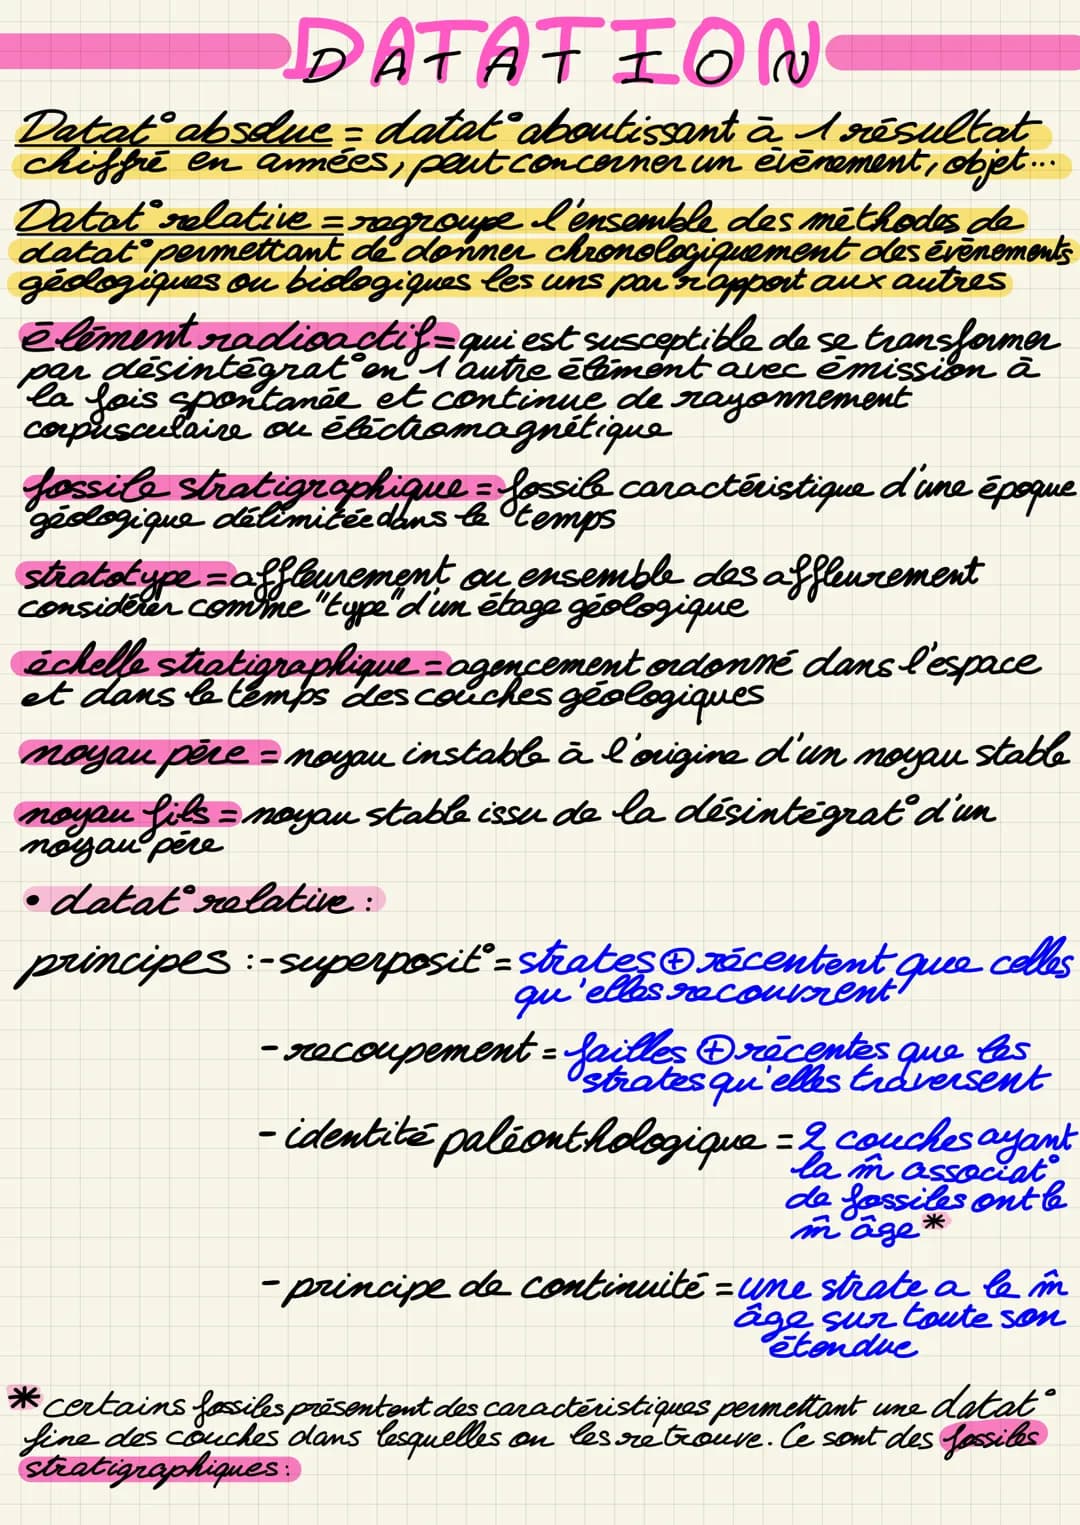 DATATION
Datat° absolue = datat° aboutissant à 1 résultat
chiffré en années, peut concerner un évènement, objet...
Datat° relative = regroupe l'ensemble des méthodes de
datat° permettant de donner chronologiquement des évènements
géologiques ou biologiques les uns par rapport aux autres
élément radioactif = qui est susceptible de se transformer
par désintégrat° en 1 autre élément avec émission à
la fois spontanée et continue de rayonnement
corpusculaire ou électromagnétique
fossile stratigraphique = fossile caractéristique d'une époque
géologique délimitée dans le temps
stratotype = affleurement ou ensemble des affleurement
considérer comme "type" d'un étage géologique
échelle stratigraphique = agencement ordonné dans l'espace
et dans le temps des couches géologiques
noyau père = noyau instable à l'origine d'un noyau stable
noyau fils = noyau stable issu de la désintégrat° d'un
noyau père
• datat° relative :
principes : - superposit° = strates ⊕ récentent que celles
qu'elles recouvrent
- recoupement = failles ⊕ récentes que les
strates qu'elles traversent
- identité paléonthologique = 2 couches ayant
la m̂ associat°
de fossiles ont le
m̂ âge *
- principe de continuité = une strate a le m̂
âge sur toute son
étendue
* certains fossiles présentent des caractéristiques permettant une datat°
fine des couches dans lesquelles on les retrouve. Ce sont des fossiles
stratigraphiques :